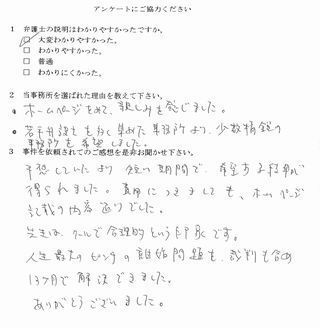 アンケートにご協力ください
1 弁護士の説明はわかりやすかったですか。
□ 大変わかりやすかった。
□ わかりやすかった。
□ 普通
□ わかりにくかった。
2 当事務所を選ばれた理由を教えて下さい。
・ホームページをみて、親しみを感じました。
・若手弁護士を多く集めた事務所より、少数精鋭の
事務所を希望しました。
3 事件を依頼されてのご感想を是非お聞かせ下さい。
予想していたより短い期間で、希望する結果が
得られました。費用につきましても、ホームページ
記載の内容通りでした。
先生は、クールで合理的という印象です。
人生最大のピンチの離婚問題も、裁判も含め
13ヶ月で解決できました。
ありがとうございました。